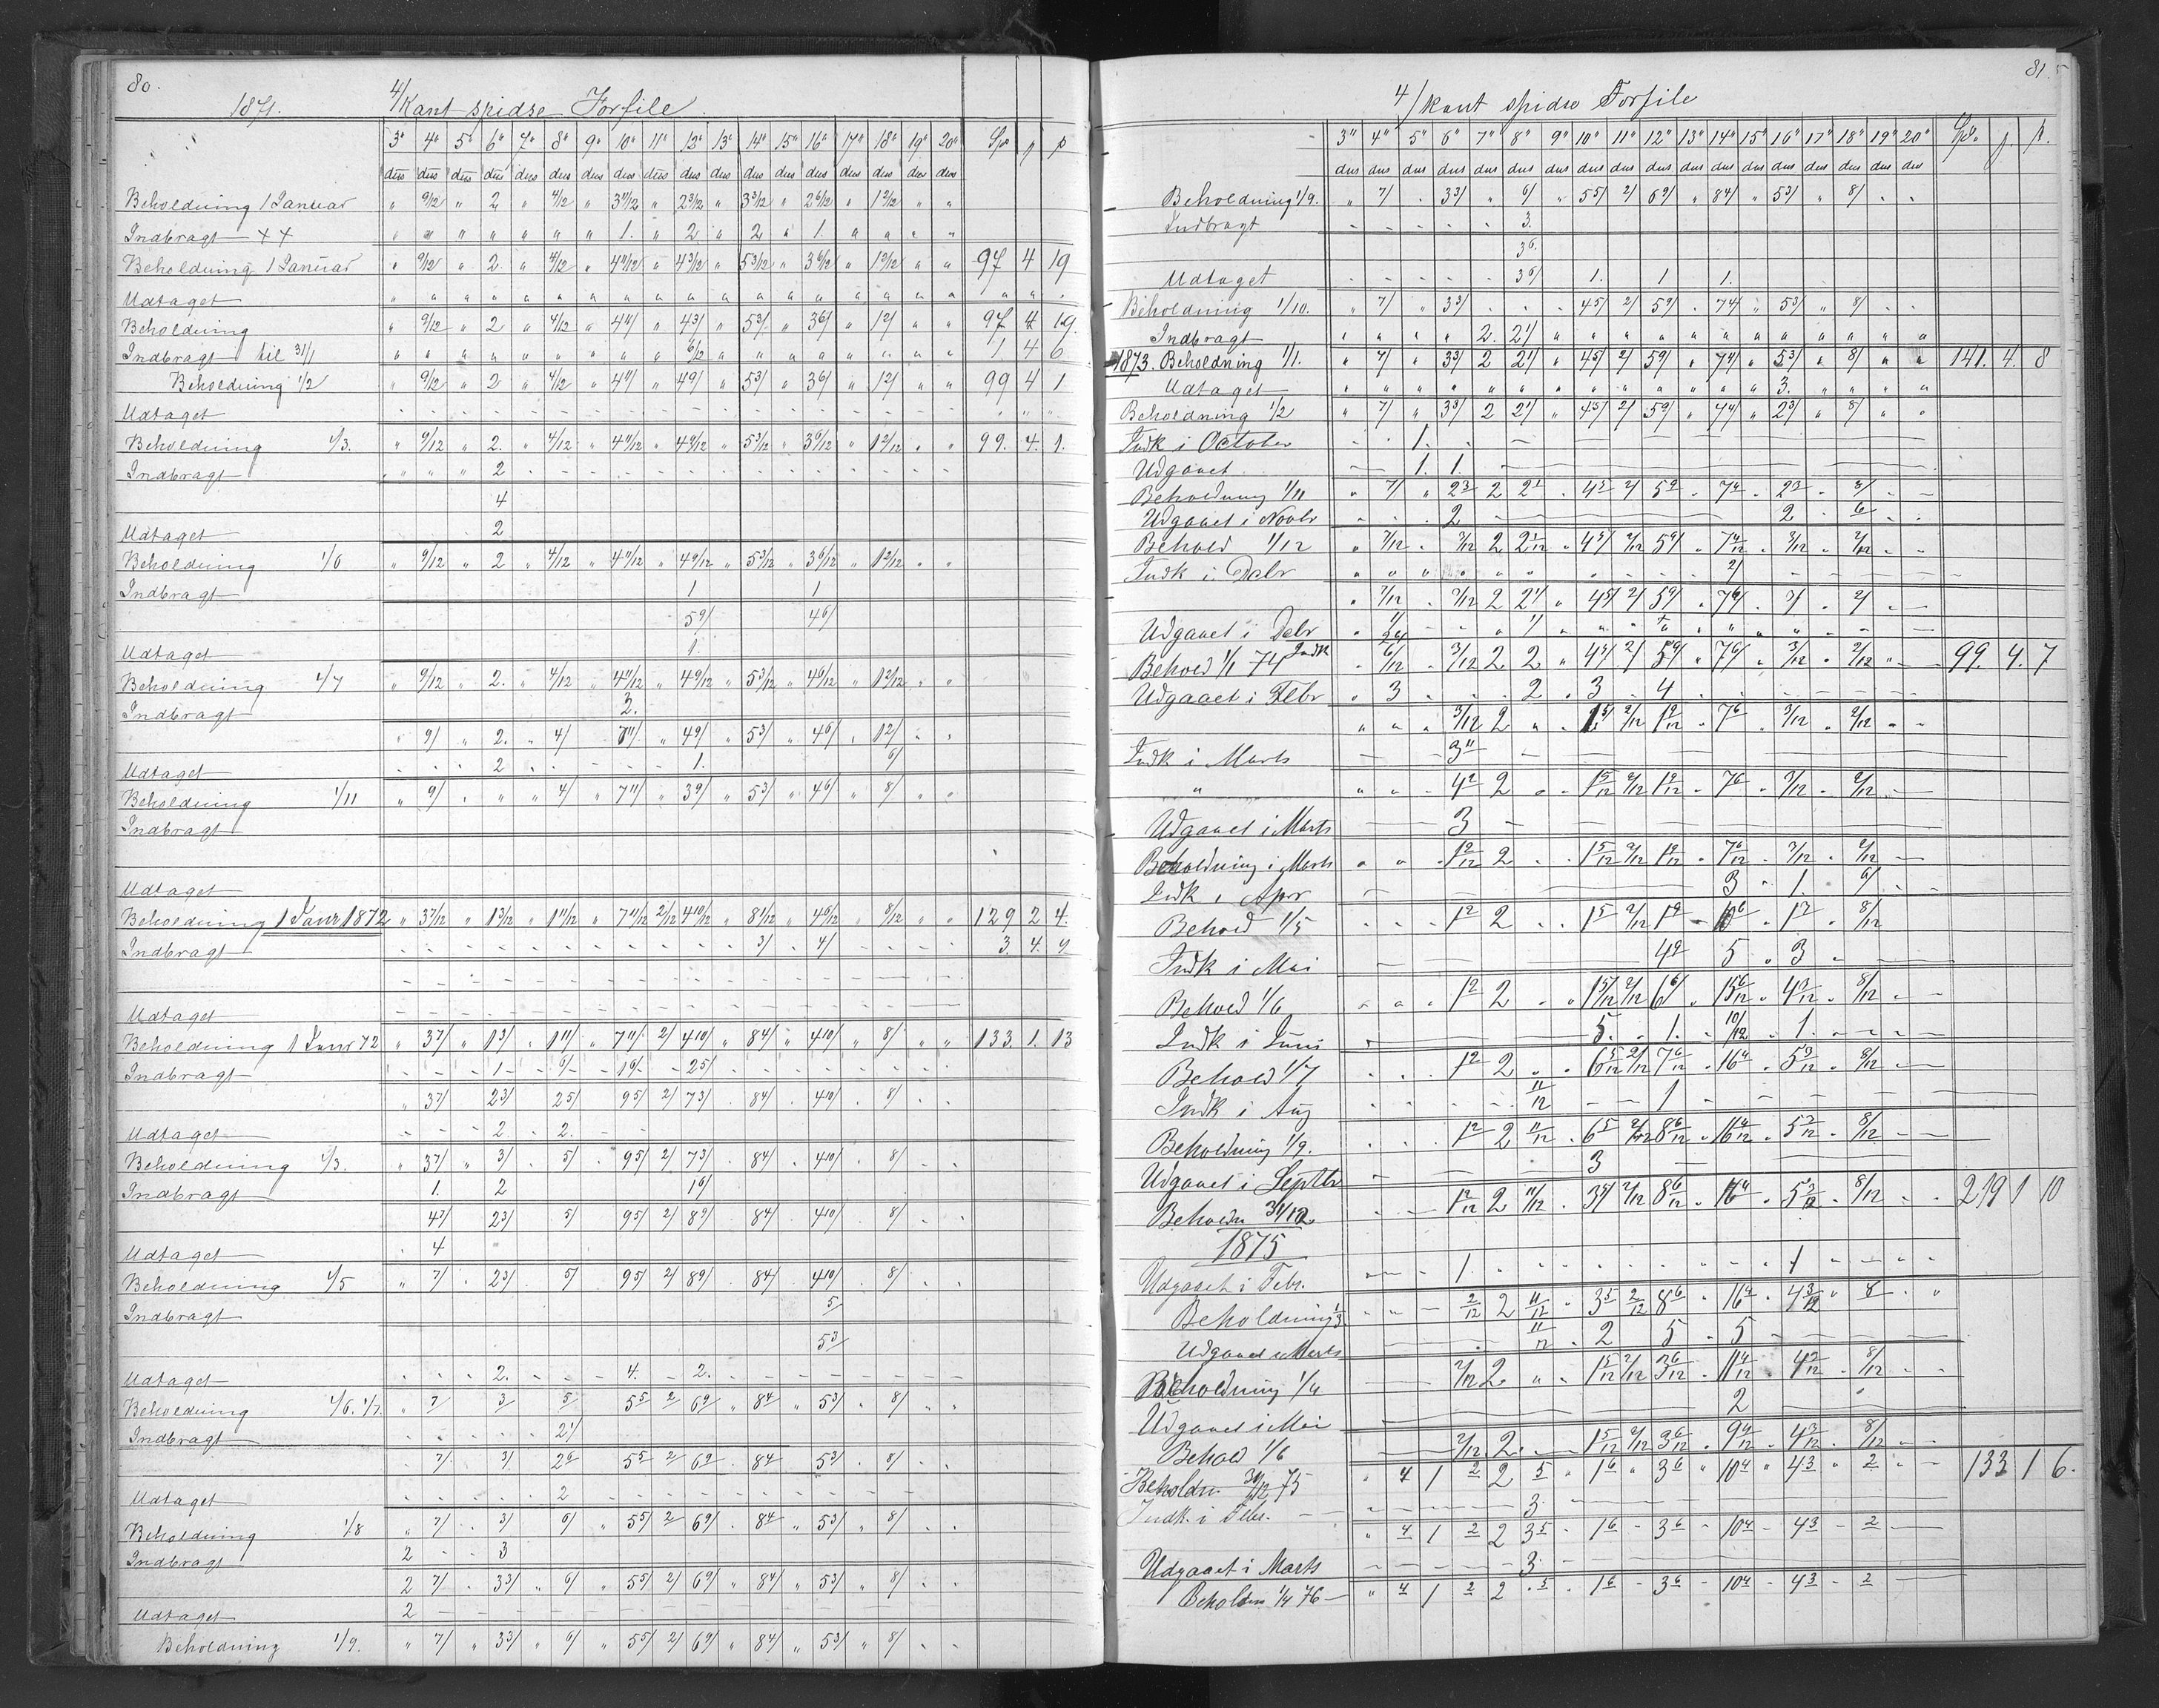 80.
1871. 4/Kant spidse Forfile
3" 4" 5" 6" 7" 8" 9" 10" 11" 12" 13" 14" 15" 16" 17" 18" 19" 20" Spd
dus dus dus dus dus dus dus dus dus dus dus dus dus dus dus dus dus dus
Beholdning 1 Januar " 9/12 " 2 " 4/12 " 3 11/12 " 2 9/12 " 3 3/12 " 2 6/12 " 1 2/12 " "
Indbragt ++ " " " " " " " 1. " 2 " 2 " 1. " " " "
Beholdning 1 Januar " 9/12 " 2. " 4/12 " 4 11/12 " 4 3/12 " 5 3/12 " 3 6/12 " 1 2/12 " " 97 4 19
Udtaget
Beholdning " 9/12 " 2 " 4/12 " 4 11/ " 4 3/ " 5 3/ " 3 6/ " 1 2/ " " 97 4 19.
Indbragt til 31/1 6/12 1. 4 6
Beholdning 1/2 " 9/12 " 2 " 4/12 " 4 11/ " 4 9/ " 5 3/ " 3 6/ " 1 2/ " " 99 4 1
Udtaget
Beholdning 1/3. " 9/12 " 2. " 4/12 " 4 11/12 " 4 9/12 " 5 3/12 " 3 6/12 " 1 2/12 " " 99. 4. 1.
Indbragt 2
4
Udtaget 2
Beholdning 1/6 " 9/12 " 2 " 4/12 " 4 11/12 " 4 9/12 " 5 3/12 " 3 6/12 " 1 2/12 " "
Indbragt 1 1
5 9/ 4 6/
Udtaget 1.
Beholdning 1/7 " 9/12 " 2. " 4/12 " 4 11/12 " 4 9/12 " 5 3/12 " 4 6/12 " 1 2/12 " "
Indbragt 3.
" 9/ " 2. " 4/ 7 11/ " 4 9/ " 5 3/ " 4 6/ " 1 2/ " "
Udtaget 2 1. 6/
Beholdning 1/11 " 9/ " " " 4/ " 7 11/ " 3 9/ " 5 3/ " 4 6/ " 8/ " "
Indbragt
Udtaget
Beholdning 1 Janr 1872 " 3 7/12 " 1 3/12 " 1 11/12 " 7 11/12 2/12 4 10/12 " 8 1/12 " 4 6/12 " 8/12 " " 129 2 4.
Indbragt 3/ 4/ 3. 4. 9
Udtaget
Beholdning 1 Janr 72 " 3 7/ " 1 3/ " 1 11/ " 7 11/ 2/ 4 10/ " 8 4/ " 4 10/ " 8/ " " 133. 1. 13
Indbragt 1 6/ 1 6/ 2 5/
" 3 7/ 2 3/ 2 5/ 9 5/ 2/ 7 3/ 8 4/ 4 10/ 8/
Udtaget 2. 2.
Beholdning 1/3. " 3 7/ " 3/ 5/ 9 5/ 2/ 7 3/ 8 4/ 4 10/ 8/
Indbragt 1. 2 1 6/
4 7/ 2 3/ 5/ 9 5/ 2/ 8 9/ 8 4/ 4 10/ 8/
Udtaget 4
Beholdning 1/5 " 7/ 2 3/ 5/ 9 5/ 2/ 8 9/ 8 4/ 4 10/ 8/
Indbragt 5/
5 3/
Udtaget 2. 4. 2.
Beholdning 1/6. 1/7. " 7/ 3/ 5/ 5 5/ 2/ 6 9/ " 8 4/ " 5 3/ " 8/
Indbragt 2 1/
7/ 3/ 2 6/ 5 5/ 2/ 6 9/ 8 4/ 5 3/ 8/
Udtaget 2
Beholdning 1/8 " 7/ 3/ 6/ " 5 5/ 2/ 6 9/ 8 4/ " 5 3/ " 8/
Indbragt 2 3
2 7/ 3 3/ " 6/ " 5 5/ 2/ 6 9/ " 8 4/ " 5 3/ " 8/
Udtaget 2
Beholdning 1/9. " 7/ " 3 3/ " 6/ " 5 5/ 2/ 6 9/ " 8 4/ " 5 3/ " 8/
81.
4/kant spidse Forfile
3" 4" 5" 6" 7" 8" 9" 10" 11" 12" 13" 14" 15" 16" 17" 18" 19" 20" Spd.
dus dus dus dus dus dus dus dus dus dus dus dus dus dus dus dus dus dus
Beholdning 1/9. " 7/ " 3 3/ " 6/ " 5 5/ 2/ 6 9/ " 8 4/ " 5 3/ " 8/
Indbragt 3.
3 6.
Udtaget 3 6/ 1. 1 1.
Beholdning 1/10. " 7/ " 3 3/ 4 5/ 2/ 5 9/ 7 4/ " 5 3/ " 8/
Indbragt 2. 2 1/
1873. Beholdning 1/1. " 7/ " 3 3/ 2 2 1/ " 4 5/ 2/ 5 9/ " 7 4/ " 5 3/ " 8/ " " 141. 4. 8
Udtaget 3.
Beholdning 1/2 " 7/ " 3 3/ 2 2 1/ " 4 5/ 2/ 5 9/ " 7 4/ " 2 3/ " 8/
Indk i October 1.
Udgaaet 1. 1.
Beholdning 1/11 " 7/ " 2 3/ 2 2 1/ " 4 5/ 2/ 5 9/ " 7 4/ " 2 3/ " 8/
Udgaaet i Novbr 2 2 6
Behold 1/12 " 7/12 " 3/12 2 2 1/12 " 4 5/ 2/12 5 9/ " 7 4/12 " 3/12 " 2/12
Indk i Debr 2/
" 7/12 " 3/12 2 2 1/ " 4 5/ 2/ 5 9/ " 7 6/ 3/ 2/
Udgaaet i Debr 1/ 1/
Behold 1/1 74 Indk " 6/12 " 3/12 2 2 " 4 5/ 2/ 5 9/ " 7 6/ 3/12 " 2/12 99. 4. 7
Udgaaet i Febr " 3 2 3 4
" " " 3/12 2 " " 1 5/ 2/12 1 9/12 " 7 6 3/12 2/12
Indk i Marts 3 11
" " " 4 2 2 1 5/12 2/12 1 9/12 7 6 3/12 2/12
Udgaaet i Marts 3
Beholdning i Marts " " 1 2/12 2 1 5/12 2/12 1 9/12 7 6/12 3/12 2/12
Indk i Apr 3 1. 6/
Behold 1/5 1 2 2 1 5 2/12 1 9 10 6 1 3 8/12
Indk i Mai 4 9 5 3
Behold 1/6 1 2 2 1 5/12 2/12 6 6/ 15 6/12 4 3/12 8/12
Indk i Juni 5. 1. 10/12 1.
Behold 1/7 1 2 2 6 5/12 2/12 7 6/12 16 4 5 3/12 8/12
Indk i Aug 11/12 1
Beholdning 1/9. 1 2 2 11/12 6 5 2/12 8 6/12 16 4/12 5 3/12 8/12
Udgaaet i Septbr 3
Beholdn 31/12 1 2/12 2 11/12 3 5/ 2/12 8 6/12 16 4 5 3/12 8/12 219 1 10
1875
Udgaaet i Febr. 1 1
Beholdning 1/3 2/12 2 11/12 3 5 2/12 8 6 16 4 4 3/12 8
Udgaaet i Marts 11/12 2 5 5
Beholdning 1/4 2/12 2 1 5/12 2/12 3 6/12 11 4/12 4 3/12 8/12
Udgaaet i Mai 2
Behold 1/6 2/12 2 1 5/12 2/12 3 6/12 9 4/12 4 3/12 8/12
Beholdn 30/12 75 " 4 1 2 2 5 " 1 6 " 3 6 " 10 4 " 4 3 " 2 133 1 6.
Indk. i Febr. 3
" 4 1 2 2 3 5 1 6 3 6 10 4 4 3 2
Udgaaet i Marts 3
Beholdn 1/4 76 " 4 1 2 2 5 1 6 3 6 10 4 4 3 2